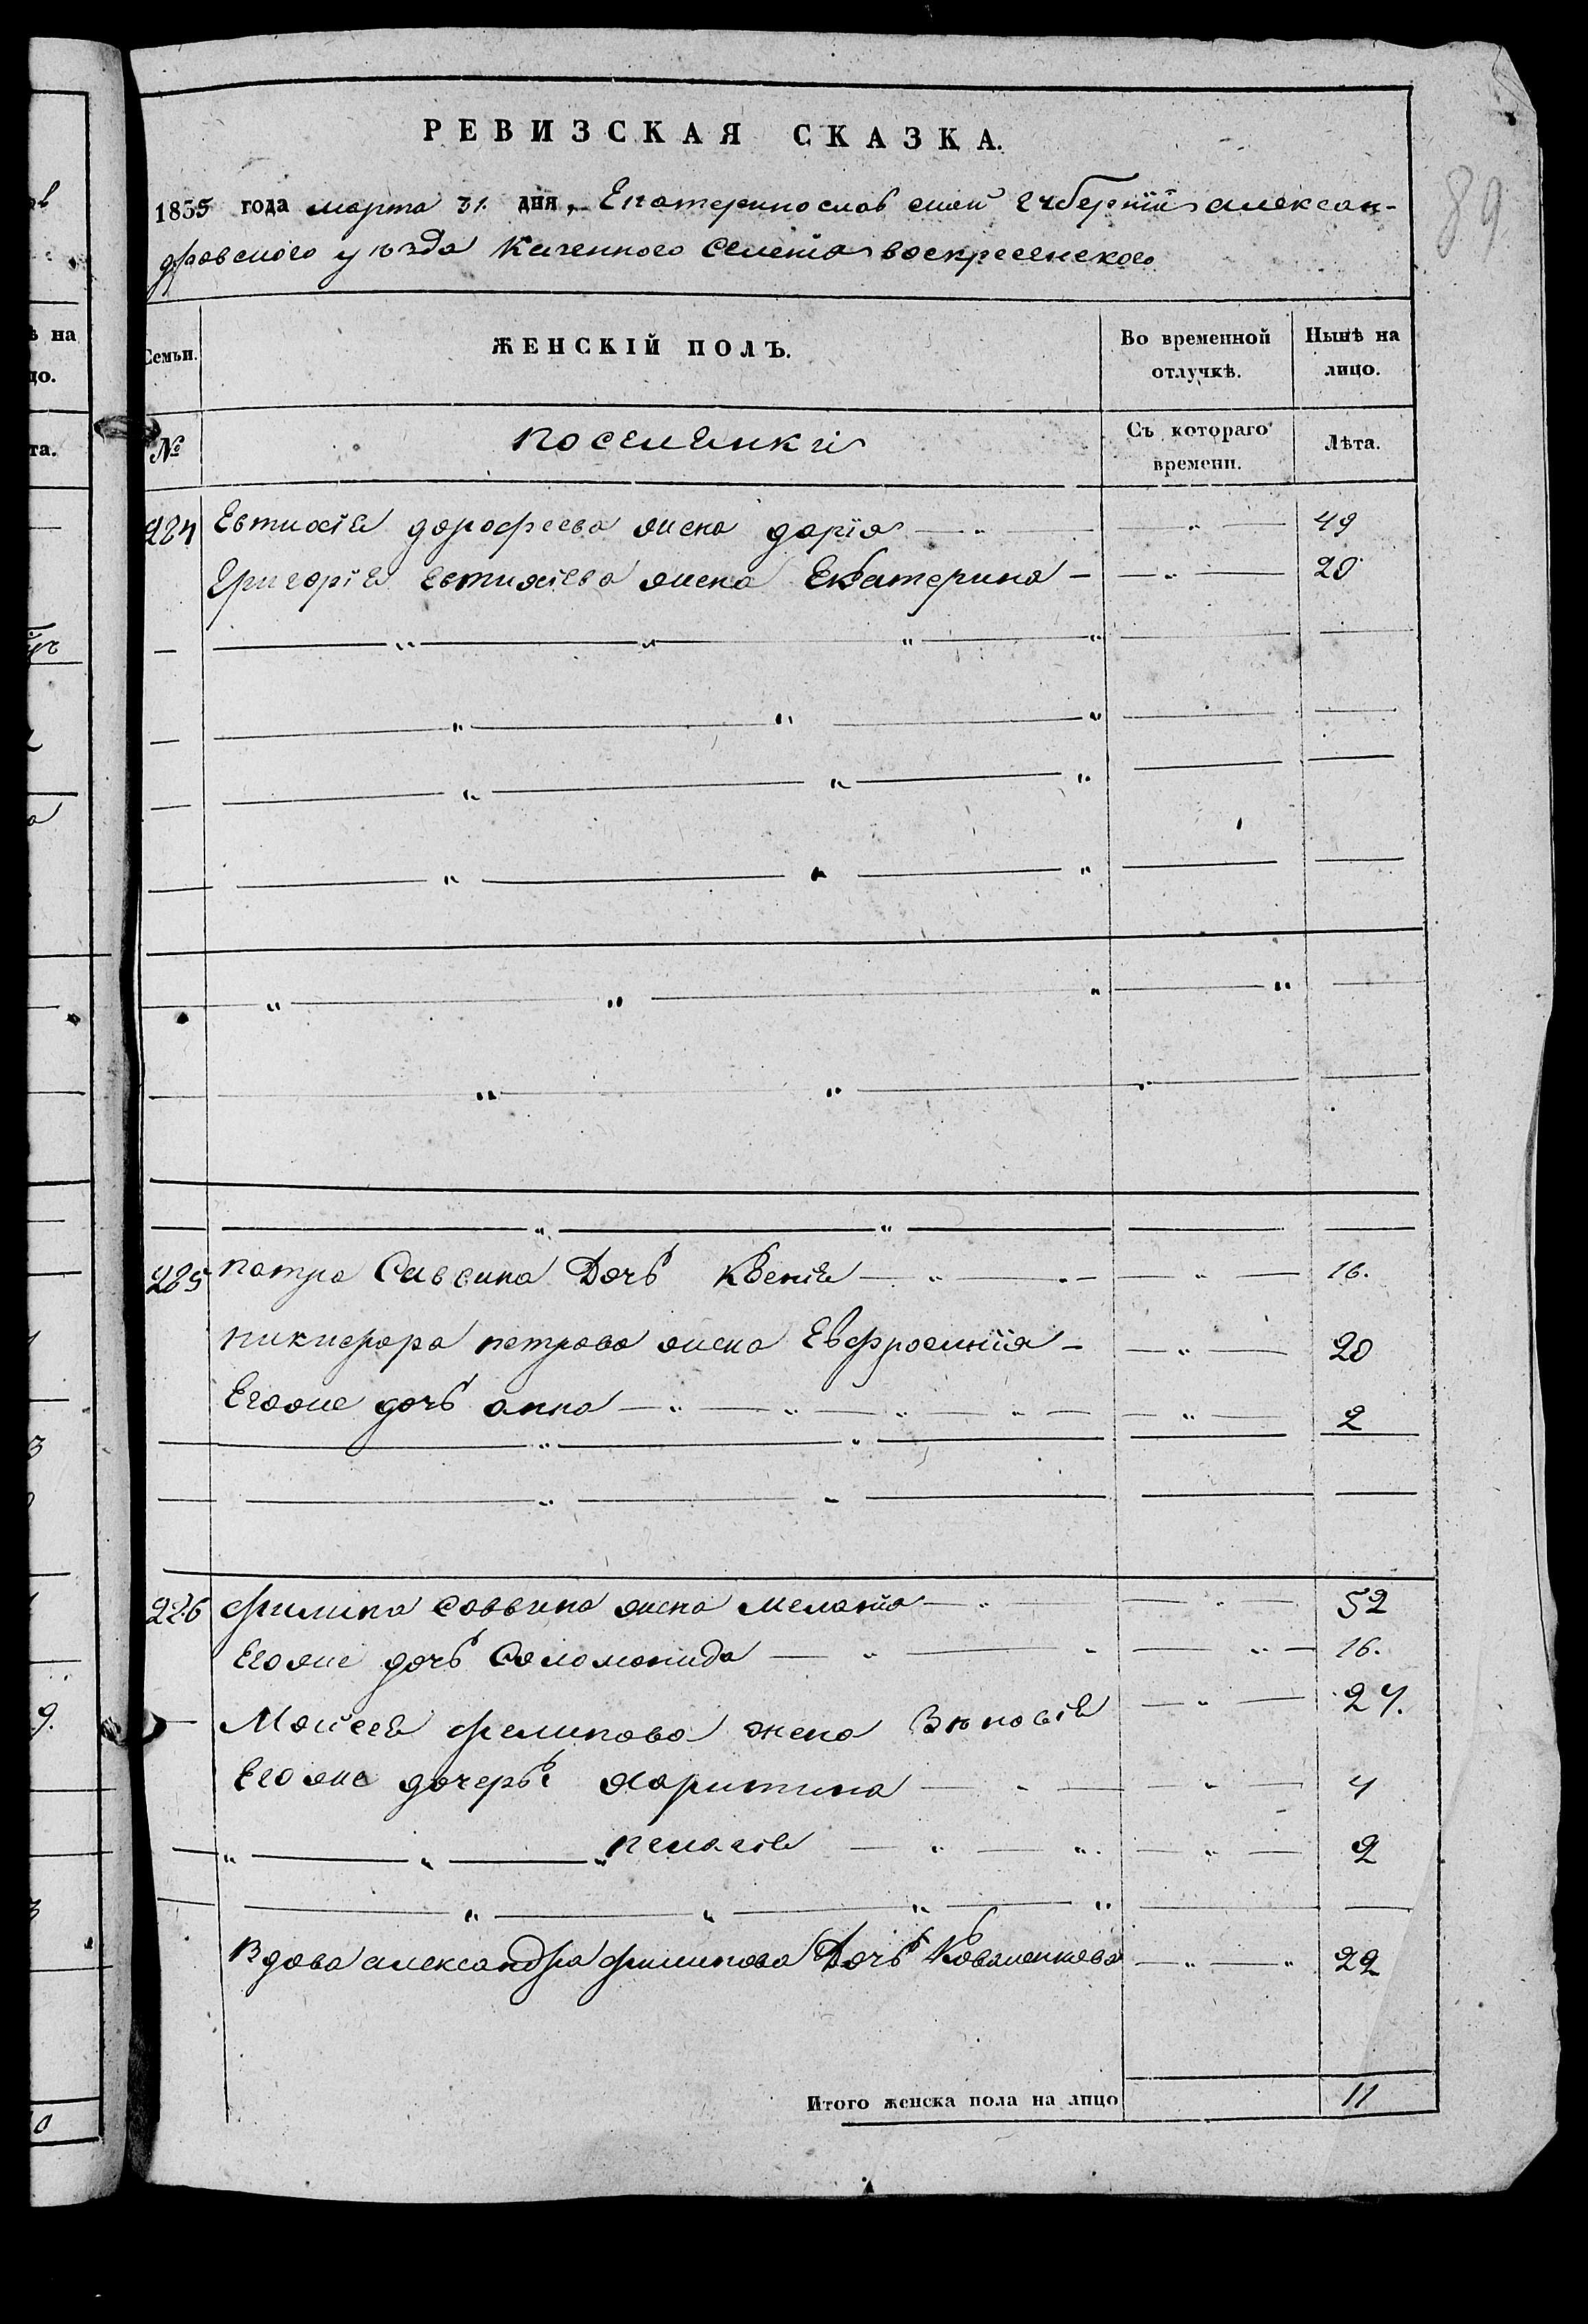 89
РЕВИЗСКАЯ СКАЗКА.
1835 года марта 31. дня, Екатеринославской губернїи александ-
ровского уѣзда Казенного Селенія воскресенского
Семьи. ЖЕНСКІЙ ПОЛЪ. Во временной отлучкѣ. Нынѣ на лицо.
№ поселянки Съ котораго времени. Лѣта.
224 Евтихія дорофеева жена дарїя 49
Григорія Евтихіева жена Екатерина 20
225 петра Саввина Дочь Ксенія 16.
никифора петрова жена Евфросинїя 20
Егоже дочь анна 2
226 филипа саввина жена меланїя 52
Егоже дочь Соломонида 16.
Моисея филипова жена Зѣновія 24.
Егоже дочери харитина 4
пелагія 2
Вдова александра филипова Дочь Коваленкова 22
Итого женска пола на лицо 11